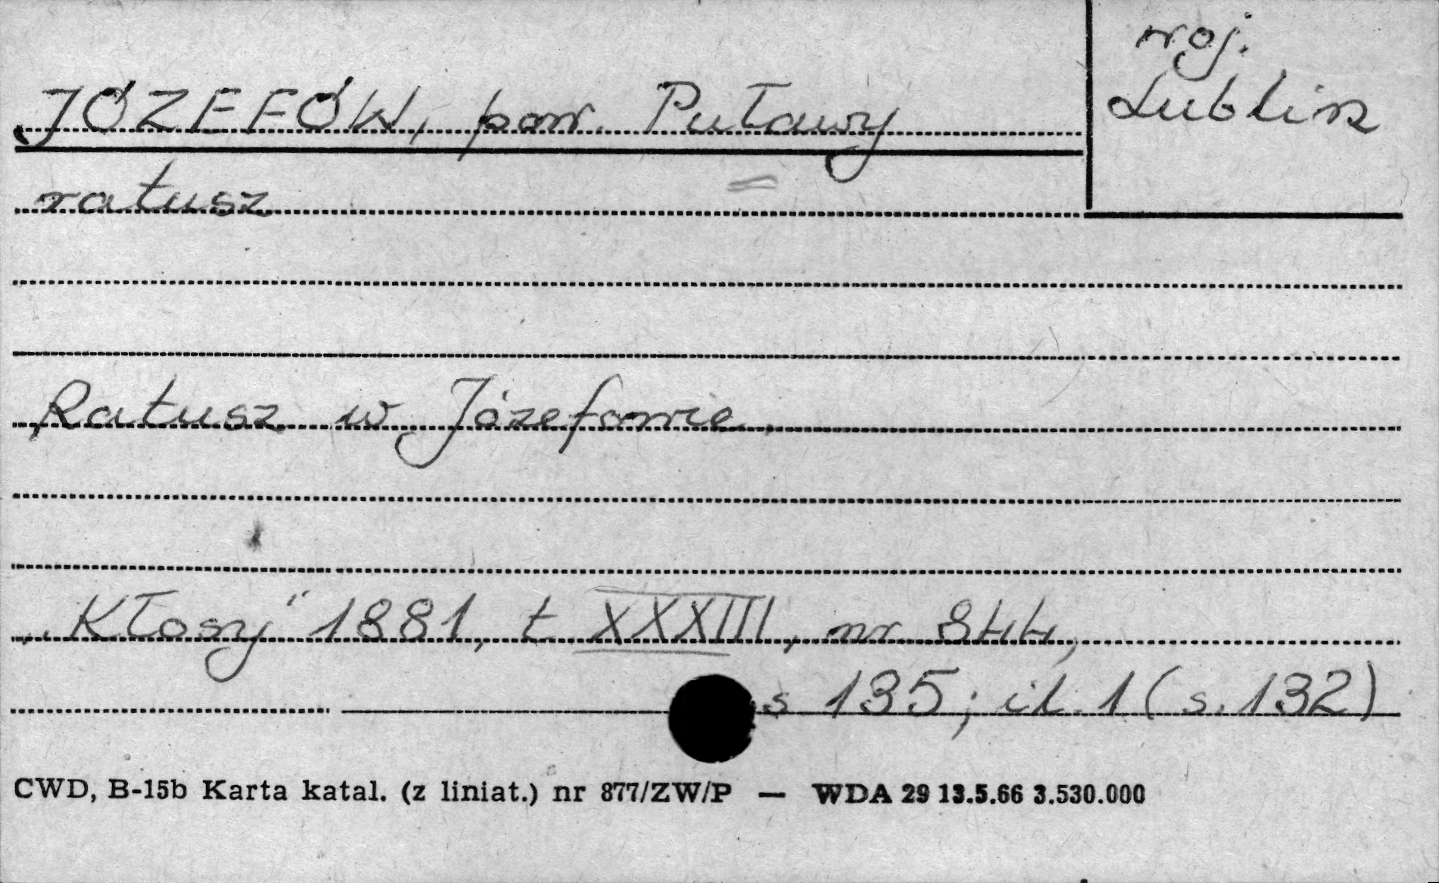 woj.
Lublin
JÓZEFÓW, pow. Puławy
ratusz
Ratusz w Józefowie.
„Kłosy" 1881, t. XXXIII, nr 844,
s 135; il. 1 (s. 132)
CWD, B-15b Karta katal. (z liniat.) nr 877/ZW/P — WDA 29 13.5.66 3.530.000